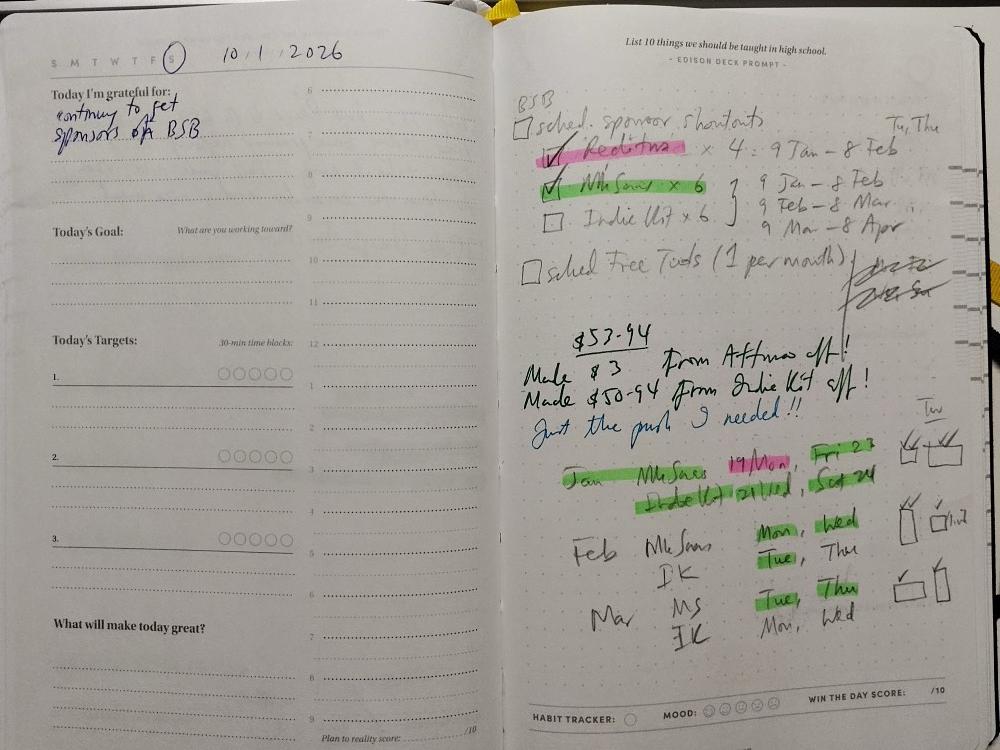 S M T W T F S 10 / 1 / 2026
Today I'm grateful for:
continuing to get
sponsors of BSB
Today's Goal: What are you working toward?
Today's Targets: 30-min time blocks:
1.
2.
3.
What will make today great?
6
7
8
9
10
11
12
1
2
3
4
5
6
7
8
9
Plan to reality score: /10
List 10 things we should be taught in high school.
- EDISON DECK PROMPT -
BSB
sched. sponsor shoutouts
Tu, Thu
× 4 : 9 Jan - 8 Feb
MkSaas × 6 9 Jan - 8 Feb
9 Feb - 8 Mar
Indie Kit × 6
9 Mar - 8 Apr
sched Free Tools (1 per month)
$53.94
Made $3 from aff!
Made $50.94 from Indie Kit aff!
Just the push I needed!!
Jan MkSaas 19 Mon, Fri 23
Indie Kit 21 Wed, Sat 24
Feb MkSaas Mon, Wed
IK Tue, Thu
Mar MS Tue, Thu
IK Mon, Wed
HABIT TRACKER: MOOD: WIN THE DAY SCORE: /10